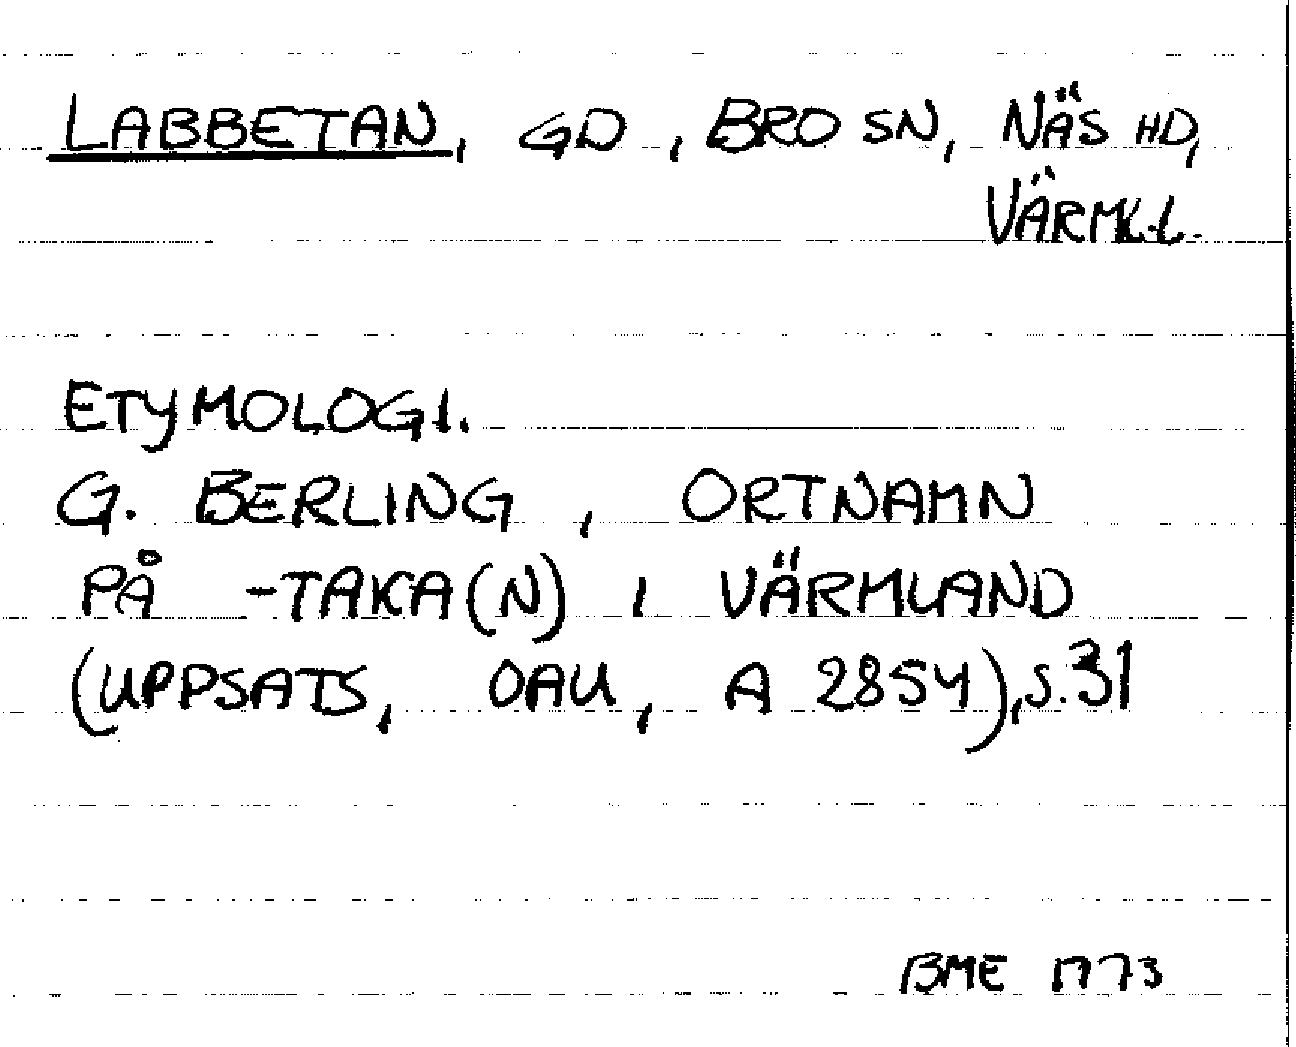 LABBETAN, GD, BRO SN, NÄS HD,
VÄRML.L.
ETYMOLOGI.
G. BERLING, ORTNAMN
PÅ -TAKA(N) I VÄRMLAND
(UPPSATS, OAU, A 2854), S. 31
BME 1973